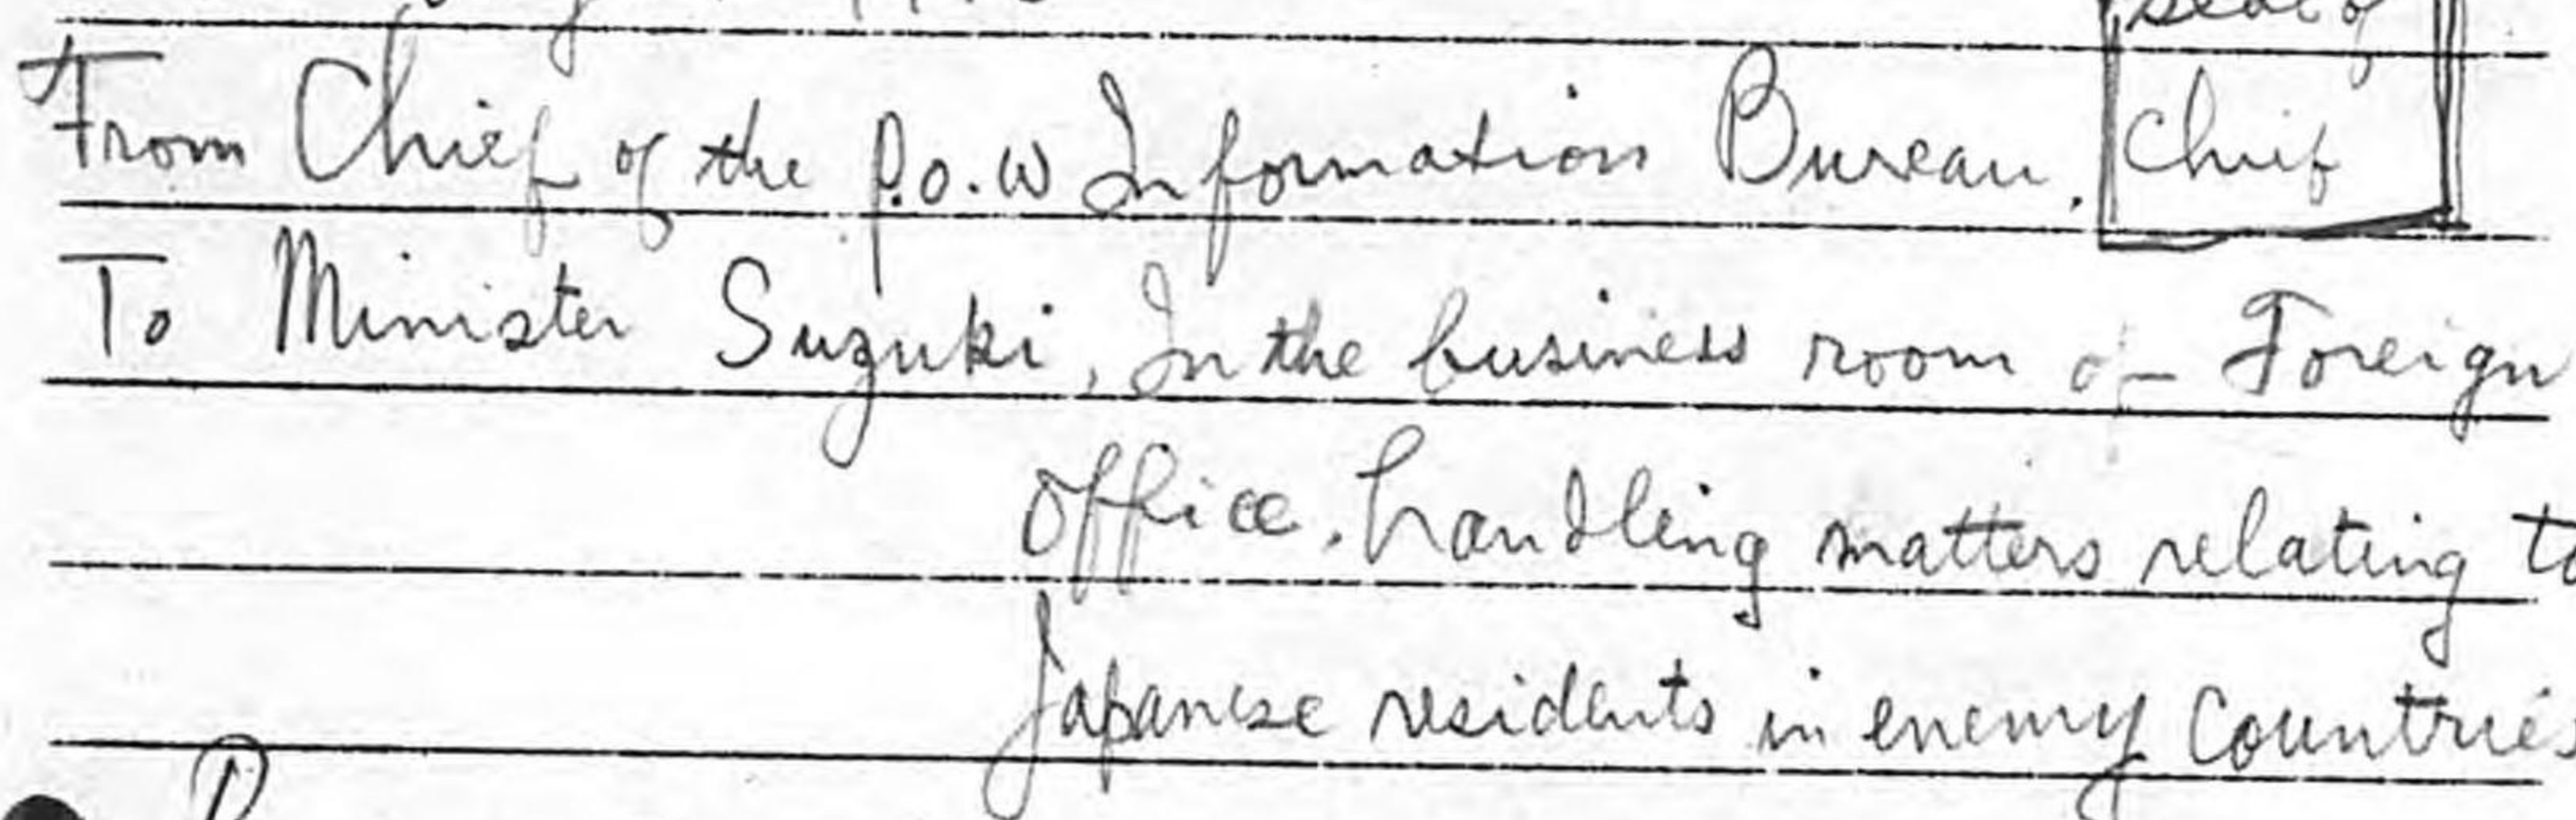 seal of
From Chief of the P.O.W Information Bureau. Chief
To Minister Suzuki, In the business room of Foreign
office. handling matters relating to
Japanese residents in enemy Countries